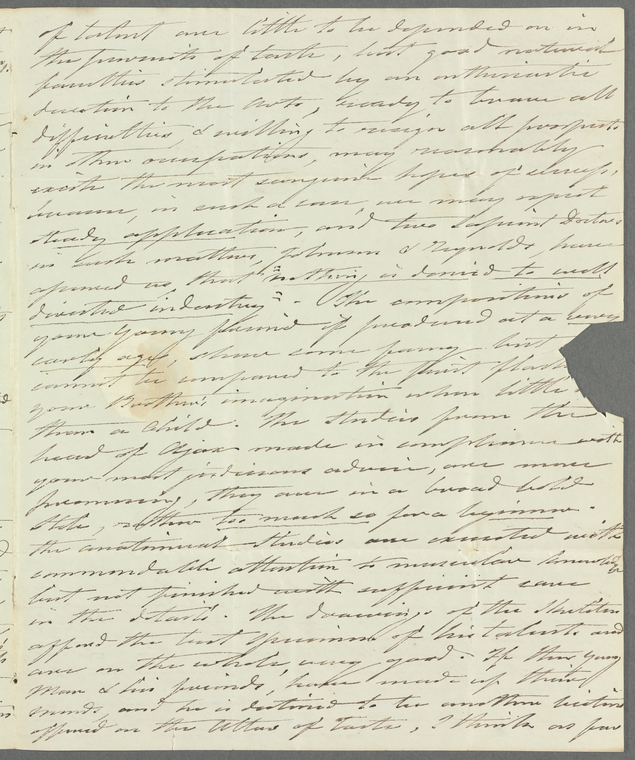 of talent are little to be depended on in
the pursuits of taste, but good natural
faculties stimulated by an enthusiastic
devotion to the Arts, ready to brave all
difficulties, & willing to resign all prospects
in other occupations, may reasonably
excite the most sanguine hopes of success,
because, in such a case, we may expect
steady application, and two eminent Doctors
in such matters, Johnson & Reynolds, have
assured us, that "nothing is denied to well
directed industry". The compositions of
your young friend if produced at a very
early age, shew some fancy but
cannot be compared to the first flash
your Brother's imagination when little
than a child. The studies from the
head of Ajax made in compliance with
your most judicious advice, are more
promising, they are in a broad bold
stile, rather too much so for a beginner.
the anatomical studies are executed with
commendable attention to muscular knowledge
but not finished with sufficient care
in the details. The drawings of the Skeleton
afford the best specimen of his talents and
are on the whole, very good. If this young
Man & his friends, have made up their
minds, and he is destined to be another victim
offered on the Altar of Taste, I think as far